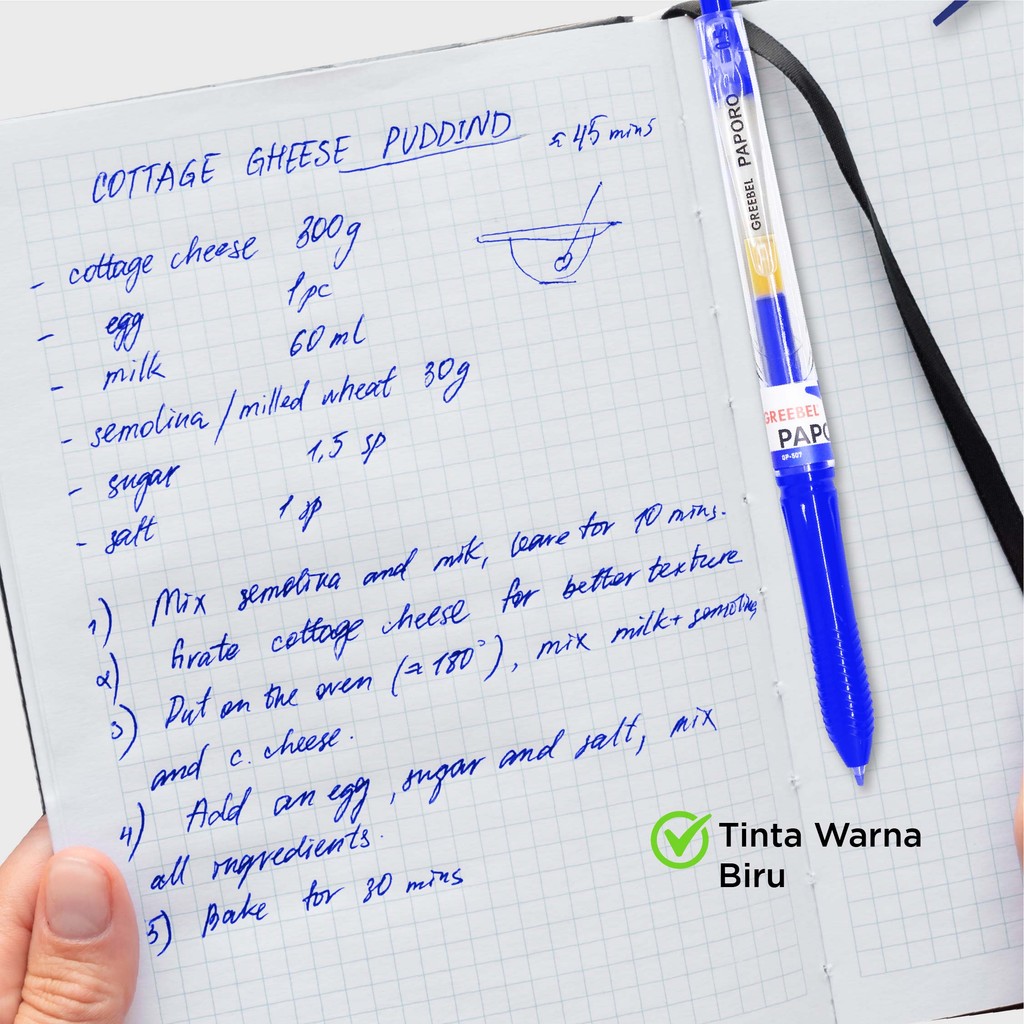 COTTAGE GHEESE PUDDIND ≈ 45 mins
- cottage cheese 300g
- egg 1 pc
- milk 60 ml
- semolina / milled wheat 30g
- sugar 1,5 sp
- salt 1 sp
1) Mix semolina and mik, leave for 10 mins.
2) Grate cottage cheese for better texture
3) Put on the oven (≈ 180°), mix milk + semolina
and c. cheese.
4) Add an egg, sugar and salt, mix
all ingredients.
5) Bake for 30 mins
0.5
GREEBEL PAPORO
GREEBEL
PAPO
GP-507
Tinta Warna
Biru